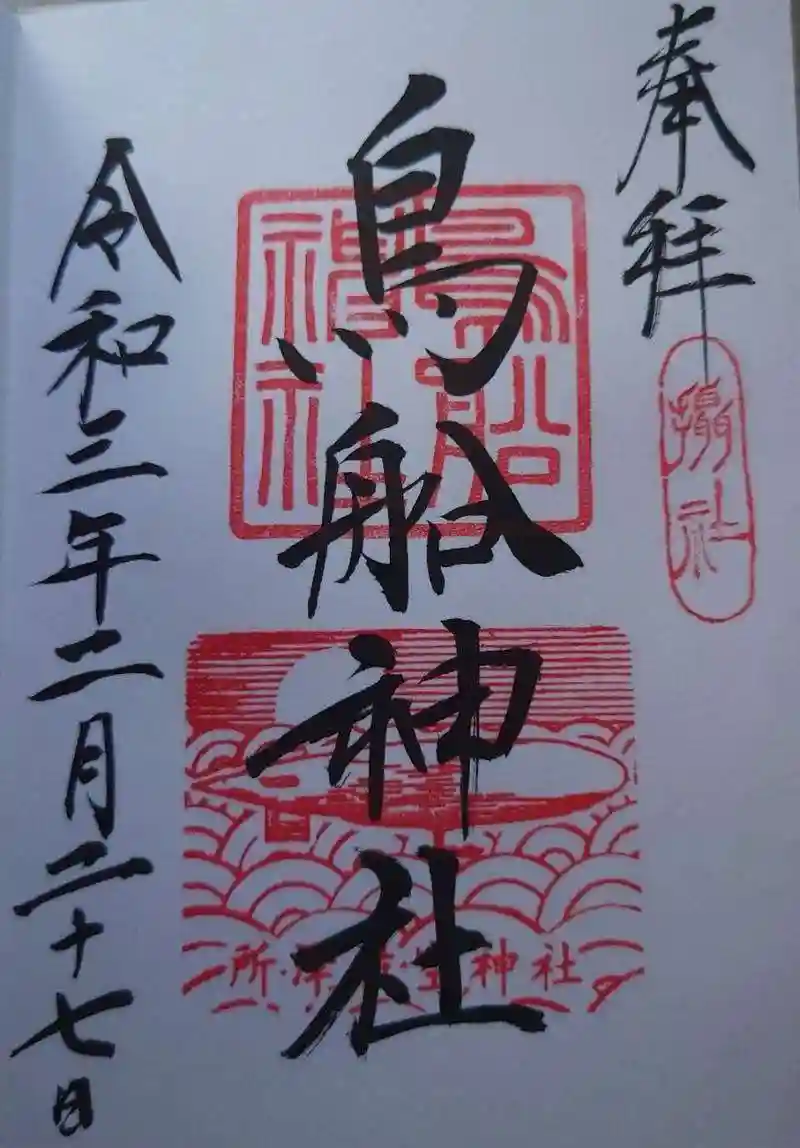 奉拝
攝社
鳥船神社
鳥船
神社
所 神社
令和三年二月二十七日